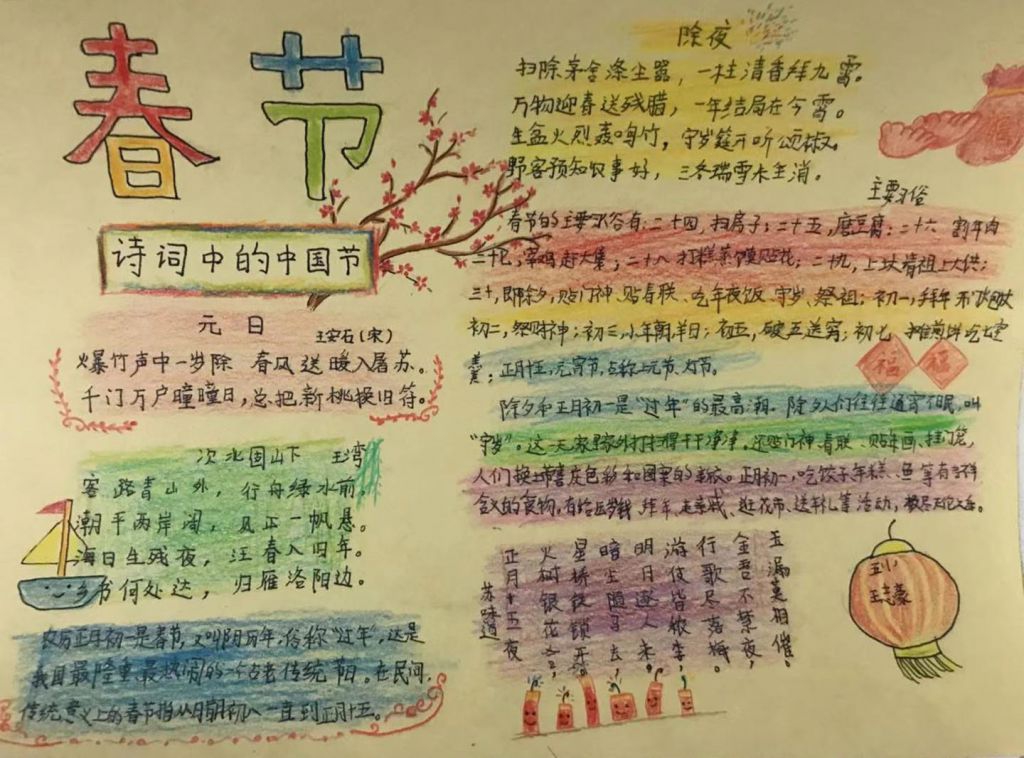 春节
诗词中的中国节
元日
王安石(宋)
爆竹声中一岁除 春风送暖入屠苏。
千门万户曈曈日,总把新桃换旧符。
次北固山下 王湾
客路青山外,行舟绿水前。
潮平两岸阔,风正一帆悬。
海日生残夜,江春入旧年。
乡书何处达,归雁洛阳边。
农历正月初一是春节,又叫阴历年,俗称“过年”,这是
我国最隆重、最热闹的一个古老传统节日。在民间,
传统意义上的春节指从腊月初八一直到正月十五。
除夜
扫除茅舍涤尘嚣,一炷清香拜九霄。
万物迎春送残腊,一年结局在今宵。
生盆火烈轰鸣竹,守岁筵开听颂椒。
野客预知农事好,三冬瑞雪未全消。
主要习俗
春节的主要习俗有:二十四,扫房子;二十五,磨豆腐;二十六 割年肉
二十七,宰鸡赶大集;二十八 打糕蒸馍贴花;二十九,上坟请祖上大供;
三十,即除夕,贴门神、贴春联、吃年夜饭、守岁、祭祖;初一,拜年
初二,祭财神;初三,小年朝羊日;初五,破五送穷;初七
正月十五,元宵节,亦称上元节、灯节。
除夕和正月初一是“过年”的最高潮。除夕人们往往通宵不眠,叫
“守岁”。这一天家里家外打扫得干干净净,还贴门神、春联、贴年画、挂门笼,
人们换上带喜庆色彩和图案的新衣。正月初一,吃饺子、年糕、鱼等有吉祥
含义的食物,有给压岁钱、拜年、走亲戚、逛花市、送社火等活动,
福 福
正月十五夜
苏味道
火树银花合,
星桥铁锁开。
暗尘随马去,
明月逐人来。
游伎皆秾李,
行歌尽落梅。
金吾不禁夜,
玉漏莫相催。
五(1)